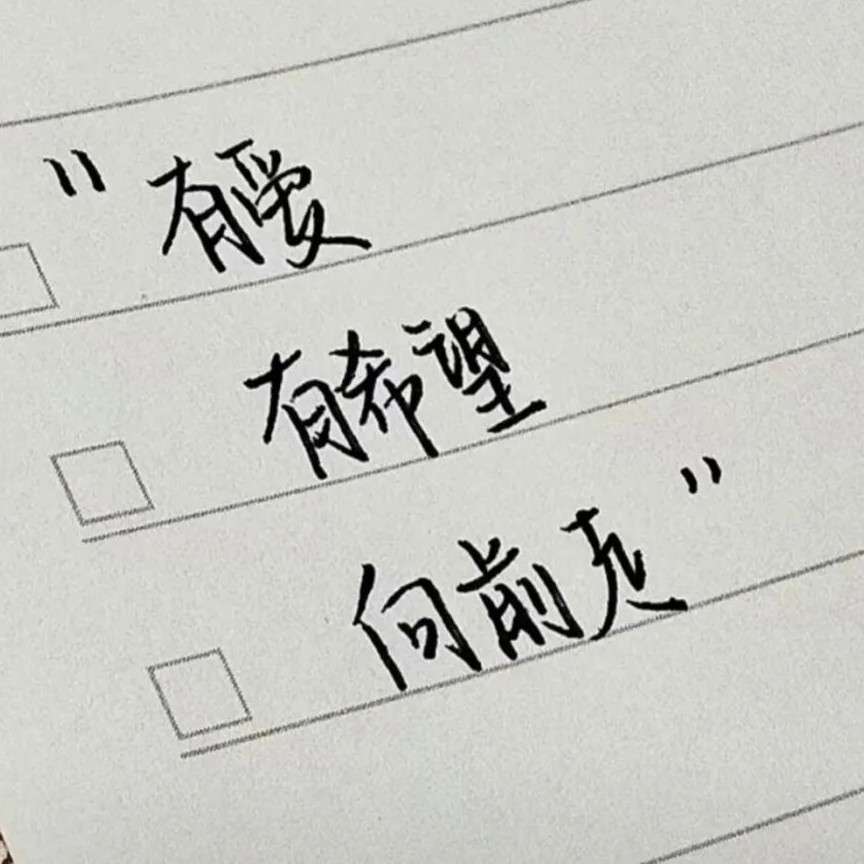 "有爱
有希望
向前走"